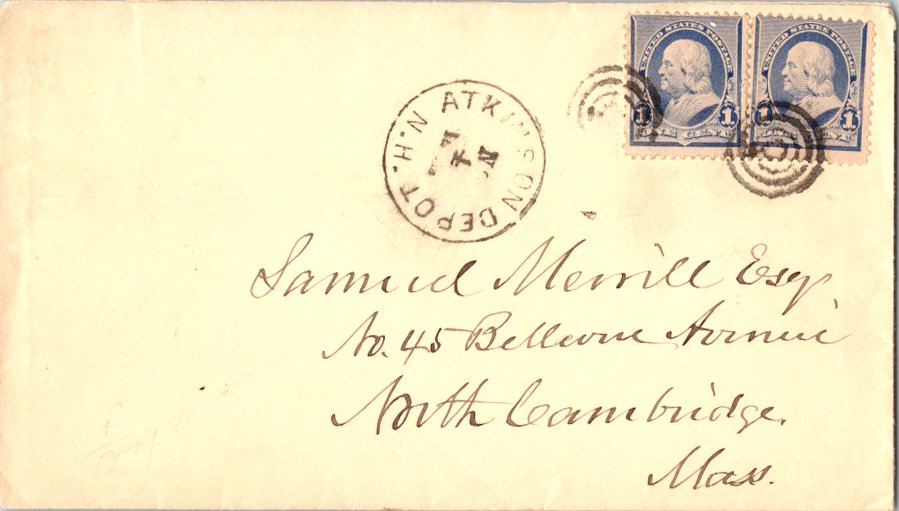 UNITED STATES POSTAGE
1 1
ONE CENT
UNITED STATES POSTAGE
1 1
CENT
ATKINSON DEPOT. N.H.
Samuel Merrill Esq
No. 45 Bellevue Avenue
North Cambridge.
Mass.